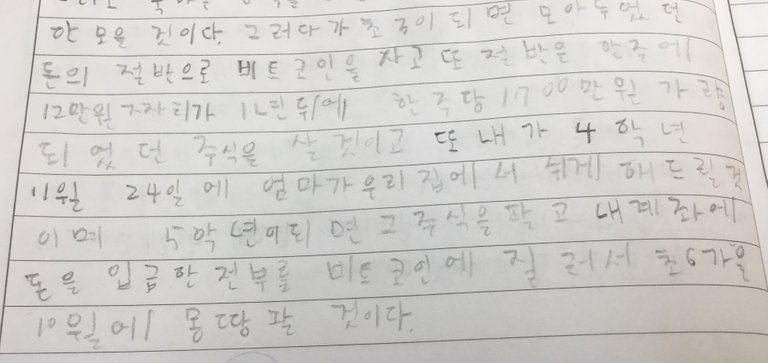 악 모을 것이다. 그러다가 초 5이 되면 모아두었던
돈의 절반으로 비트코인을 사고 또 절반은 한주에
12만원 구자리가 1년뒤에 한주당 1700만원 가량
되었던 주식을 살 것이고 또 내가 4학년
11월 24일에 엄마가 우리집에서 쉬게 해드릴 것
이며 5학년이 되면 그 주식을 팔고 내 계좌에
돈을 입금한 전부를 비트코인에 질러서 초6가을
10월에 몽땅 팔 것이다.